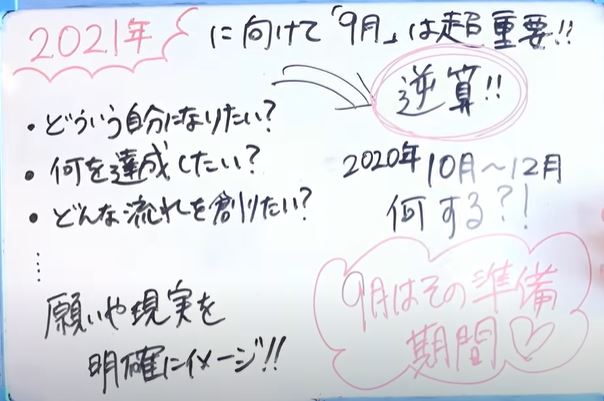 2021年に向けて「9月」は超重要!!
・どういう自分になりたい?
・何を達成したい?
・どんな流れを創りたい?
⋮
願いや現実を
明確にイメージ!!
逆算!!
2020年10月〜12月
何する?!
9月はその準備
期間♡